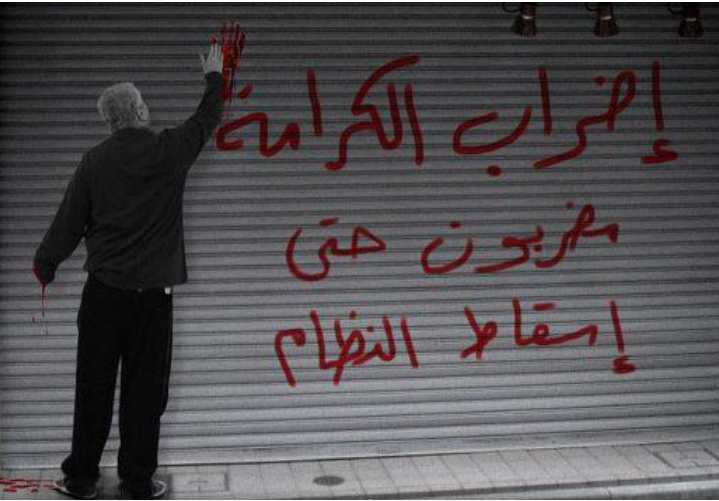 إضراب الكرامة
مضربون حتى
إسقاط النظام